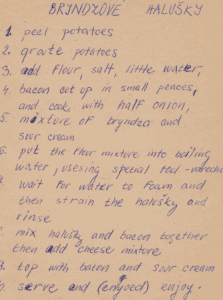 BRYNDZOVÉ HALUŠKY
1. peel potatoes
2. grate potatoes
3. add flour, salt, little water,
4. bacon cut up in small peaces,
and cook with half onion,
5. mixture of bryndza and
sour cream
6. put the flour mixture into boiling
water, usesing special tool -
wait for water to foam and
then strain the halušky and
rinse
mix halušky and bacon together
then add cheese mixture
top with bacon and sour cream
serve and (enyoed) enjoy.